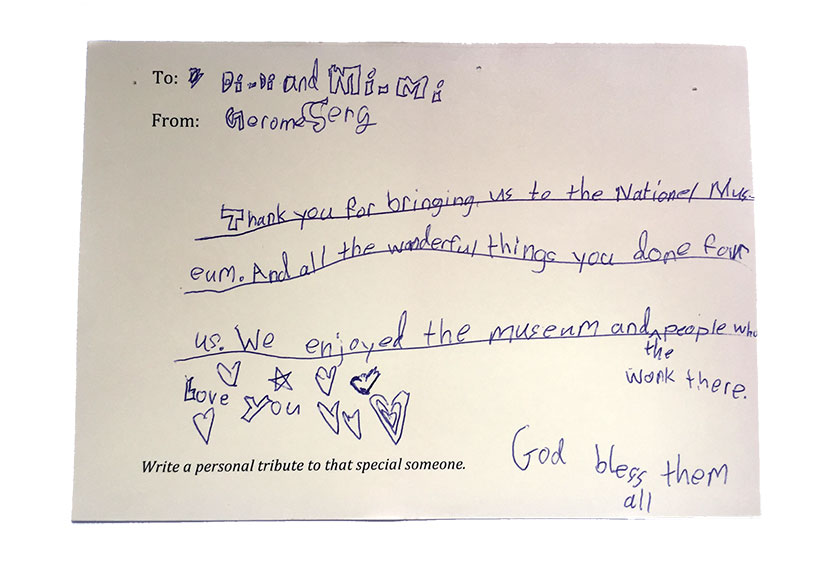 To: Di-Di and Mi-Mi
From: Gerome Serg
Thank you for bringing us to the Nationel Mus-
eum. And all the wonderful things you done four
us. We enjoyed the museum and the people who
work there.
Love You
Write a personal tribute to that special someone.
God bless them
all